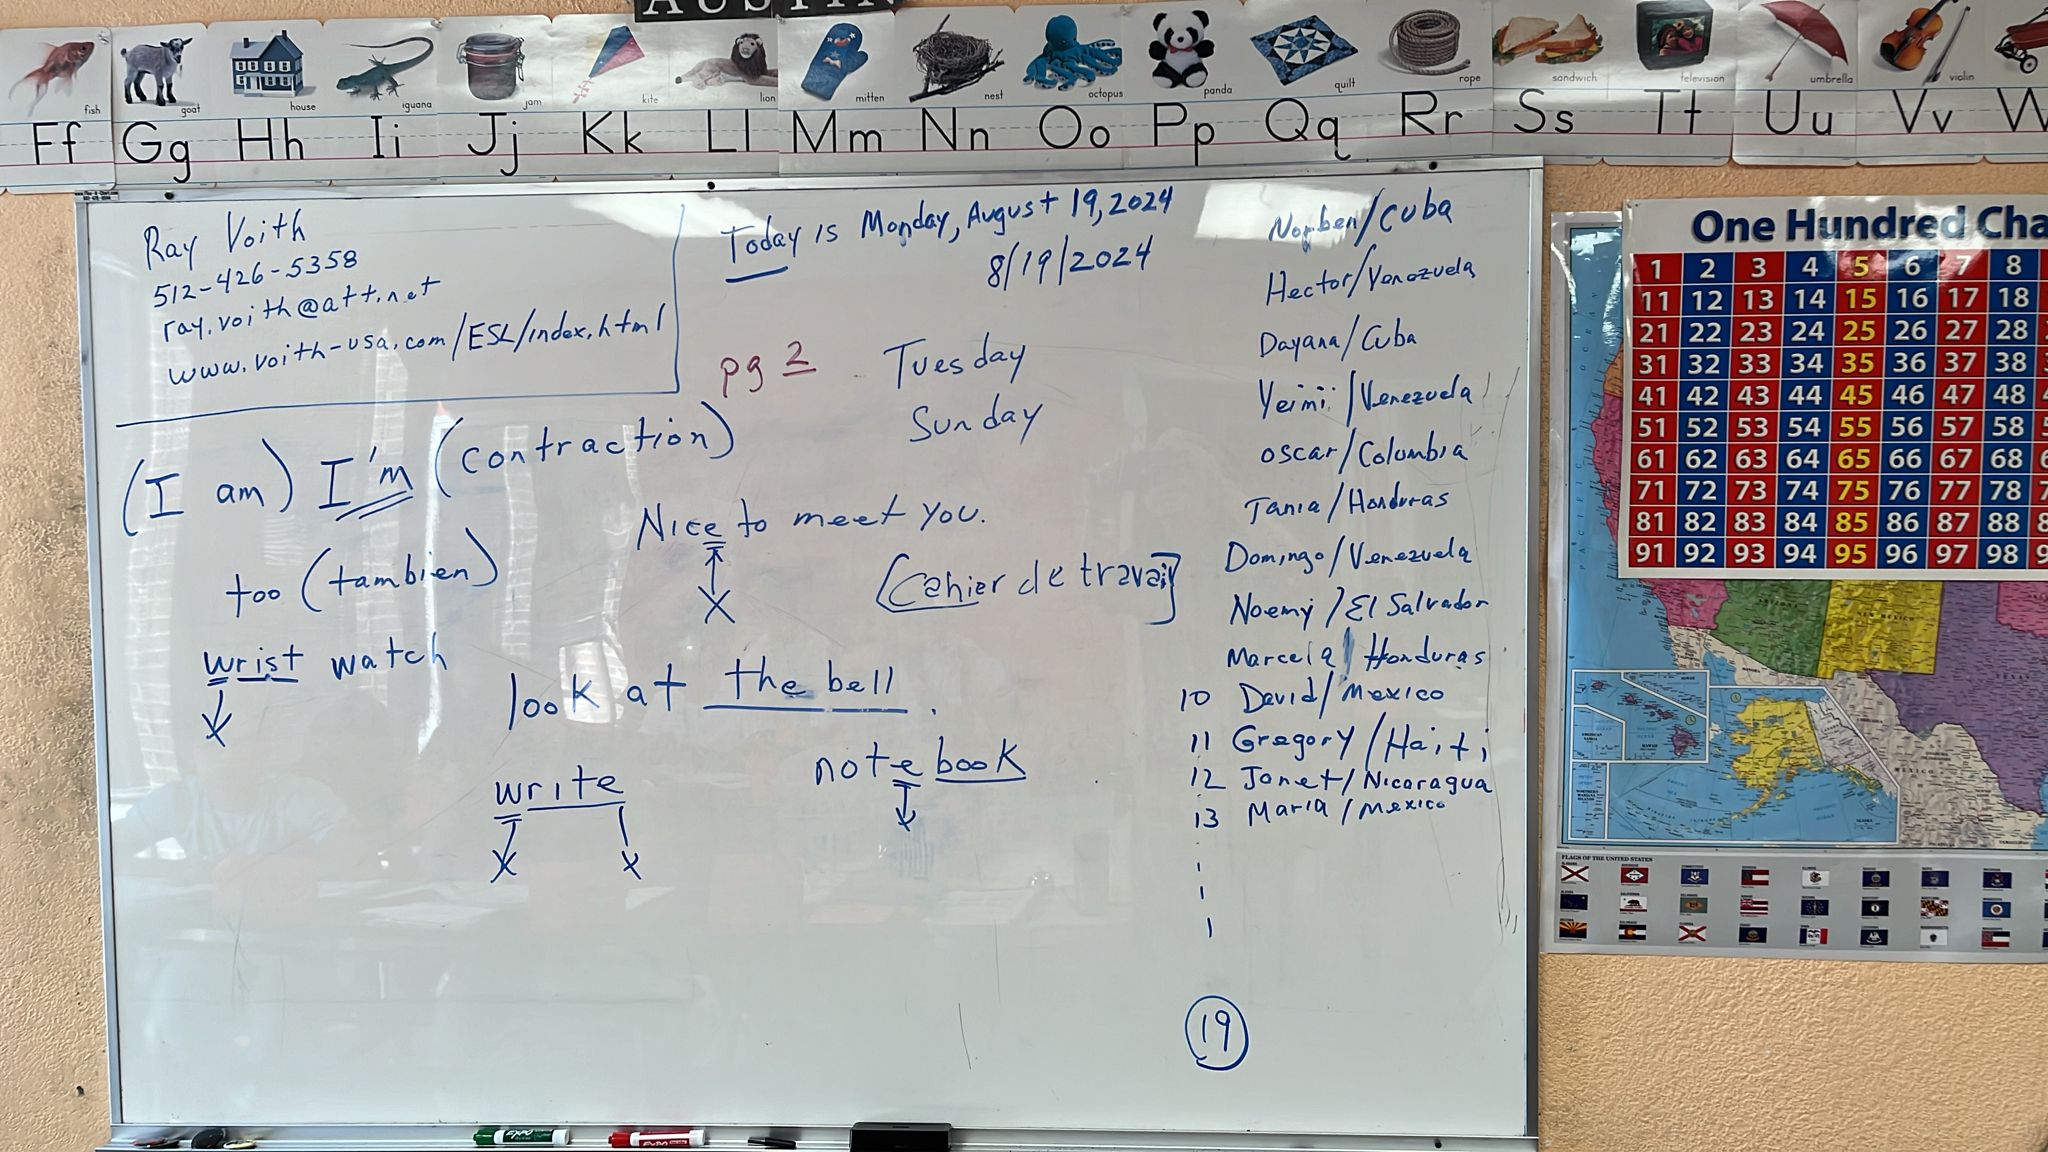 AUSTIN
fish
goat
house
iguana
jam
kite
lion
mitten
nest
octopus
panda
quilt
rope
sandwich
television
umbrella
violin
Ff Gg Hh Ii Jj Kk Ll Mm Nn Oo Pp Qq Rr Ss Tt Uu Vv W
Ray Voith
512-426-5358
ray.voith@att.net
www.voith-usa.com/ESL/index.html
Today is Monday, August 19, 2024
8/19/2024
pg 2
Tuesday
Sunday
(I am) I'm (contraction)
Nice to meet you.
X
too (tambien)
[Cahier de travail]
wrist watch
look at the bell.
write
X X
notebook
Norben/Cuba
Hector/Venezuela
Dayana/Cuba
Yeimi/Venezuela
Oscar/Columbia
Tania/Honduras
Domingo/Venezuela
Noemy/El Salvador
Marcela/Honduras
10 David/Mexico
11 Gregory/Haiti
12 Janet/Nicaragua
13 Maria/Mexico
19
EXPO
EXPO
One Hundred Cha
1 2 3 4 5 6 7 8
11 12 13 14 15 16 17 18
21 22 23 24 25 26 27 28
31 32 33 34 35 36 37 38
41 42 43 44 45 46 47 48
51 52 53 54 55 56 57 58
61 62 63 64 65 66 67 68
71 72 73 74 75 76 77 78
81 82 83 84 85 86 87 88
91 92 93 94 95 96 97 98
PACIFIC
MEXICO
FLAGS OF THE UNITED STATES